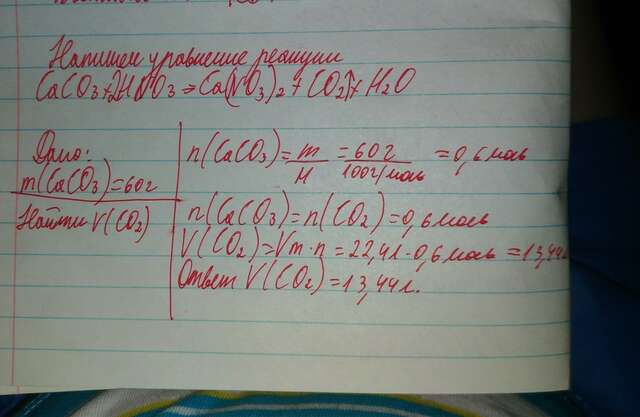 Напишем уравнение реакции
CaCO3+2HNO3=>Ca(NO3)2+CO2↑+H2O
Дано:
m(CaCO3)=60г
Найти V(CO2)
n(CaCO3)=m/M=60г/100г/моль=0,6моль
n(CaCO3)=n(CO2)=0,6моль
V(CO2)=Vm·n=22,4л·0,6моль=13,44л
Ответ V(CO2)=13,44л.